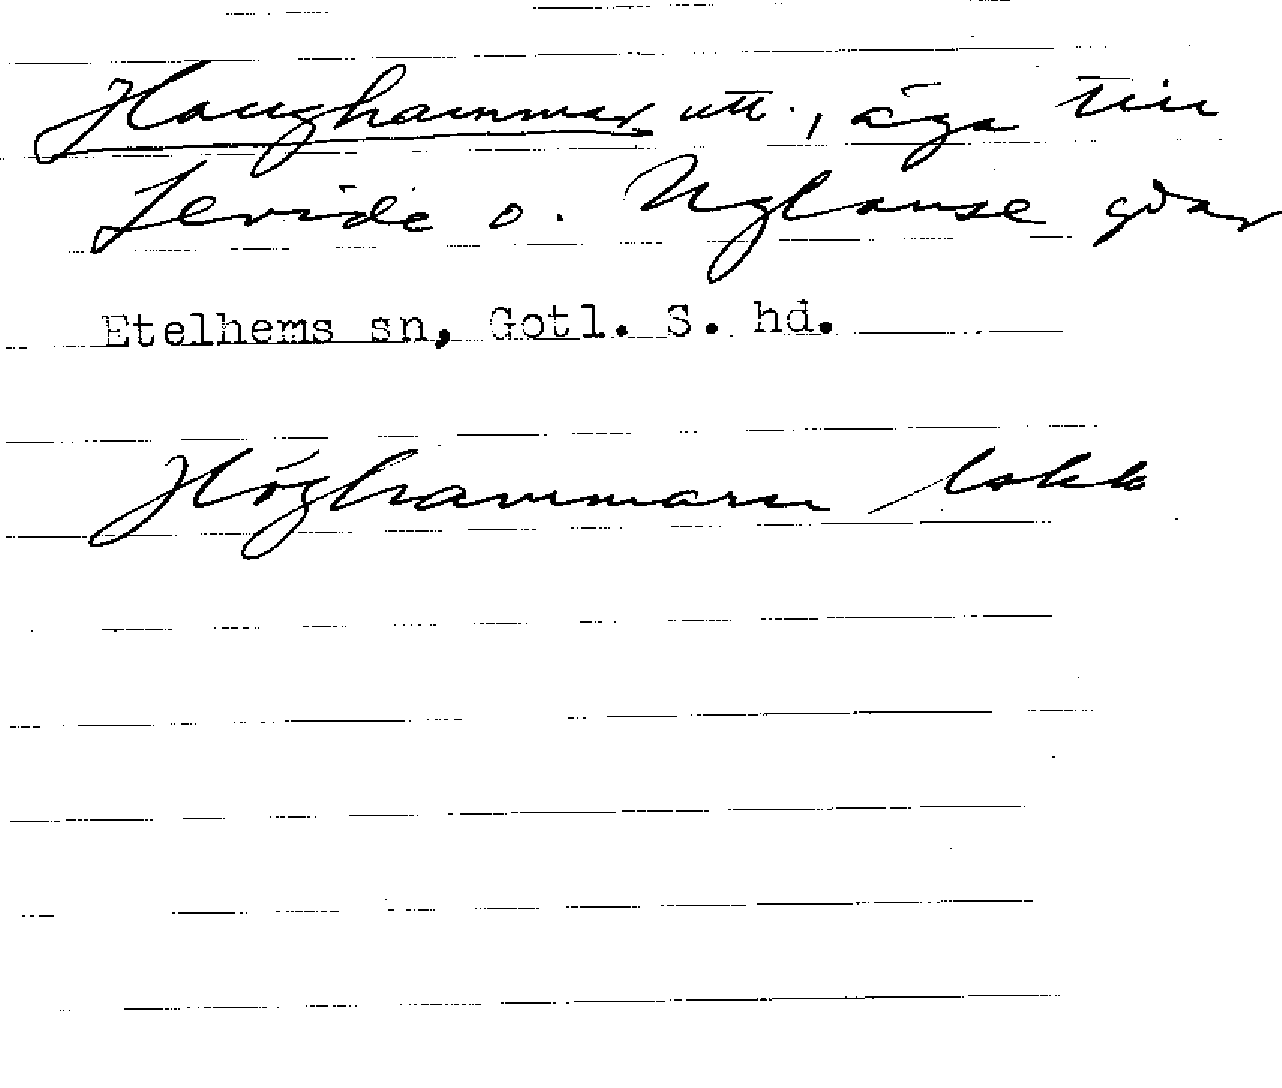 Haughammar utt., äga till
Levide o. Uglause gdar
Etelhems sn, Gotl. S. hd.
Höghammarn /